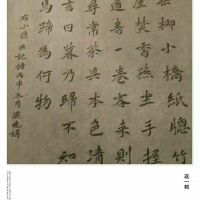 垂柳小橋紙牕竹
屋焚香燕坐手握
道書一卷客来則
尋常茶具本色清
言日暮乃歸不知
馬蹄為何物
右小牕幽記語丙申冬月
这一刻